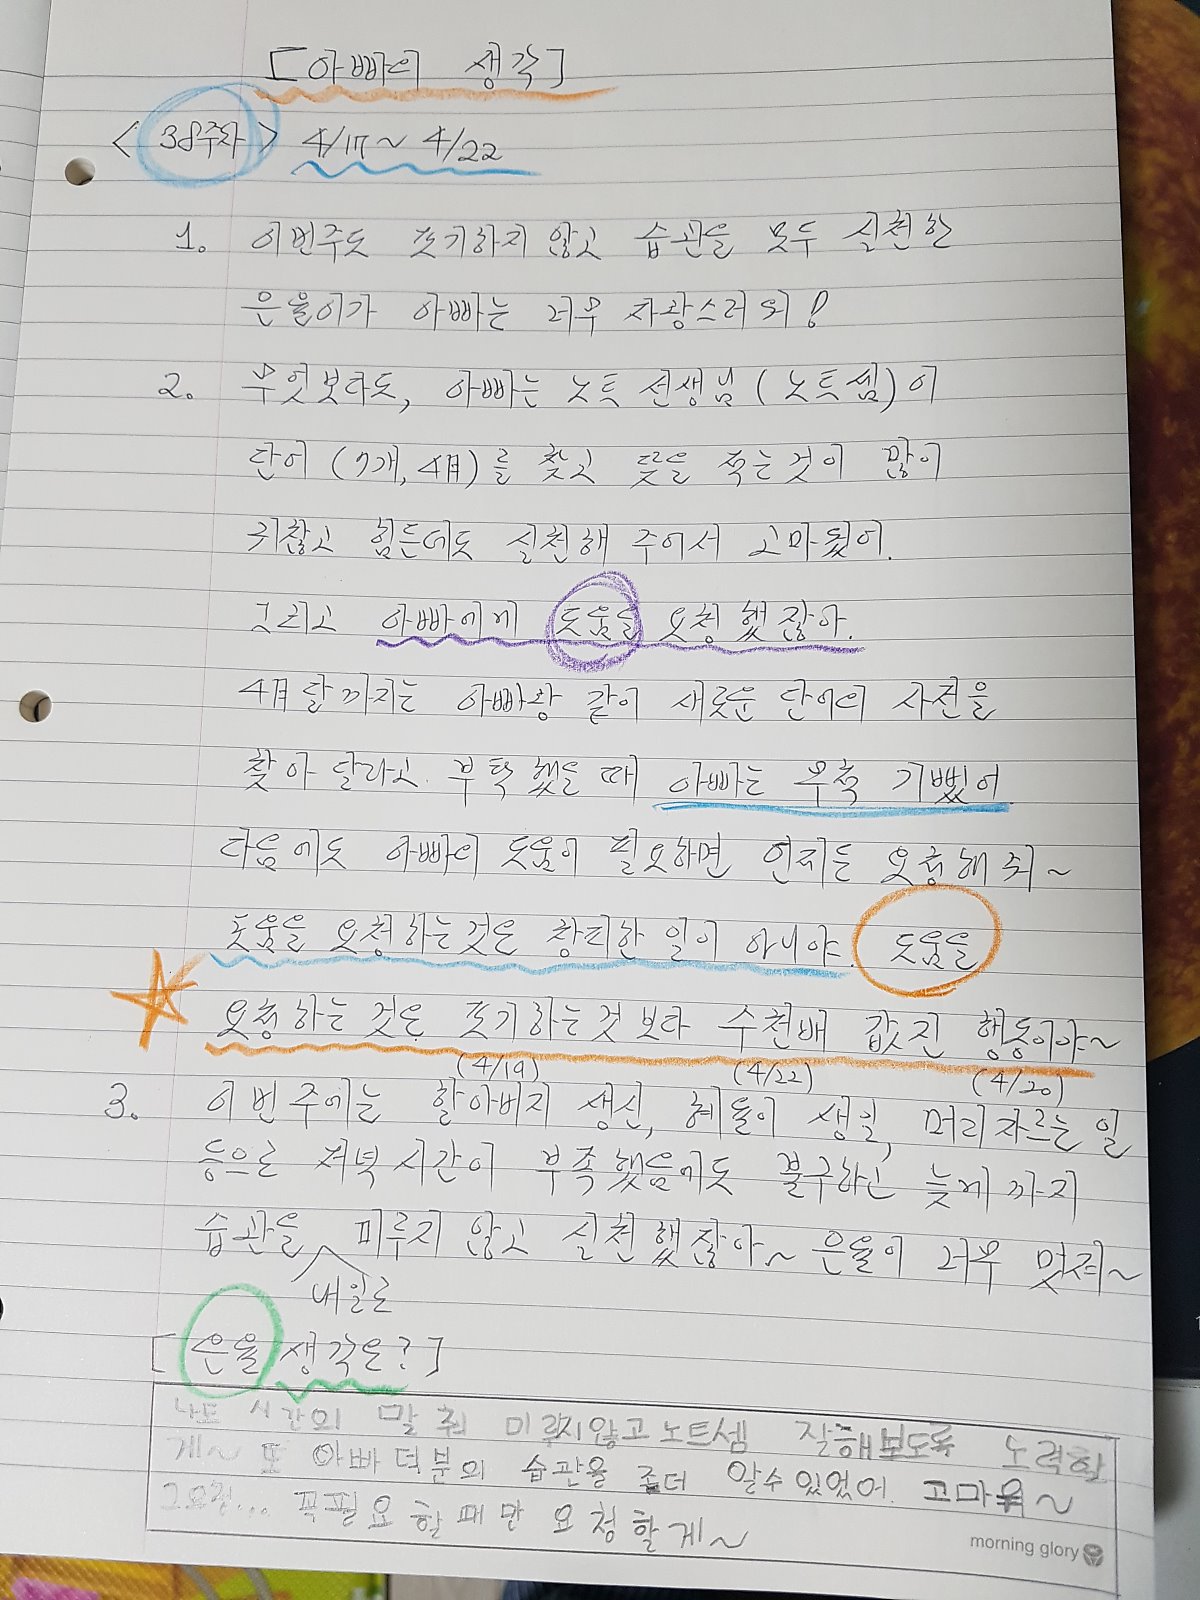 [아빠의 생각]
<38주차> 4/17 ~ 4/22
1. 이번주도 포기하지 않고 습관을 모두 실천한
은율이가 아빠는 너무 자랑스러워!
2. 무엇보다도, 아빠는 노트 선생님 (노트쎔)이
단어 (7개, 4月)를 찾고 뜻을 적는것이 많이
귀찮고 힘든데도 실천해 주어서 고마웠어.
그리고 아빠에게 도움을 요청했잖아.
4月달까지는 아빠랑 같이 새로운 단어의 사전을
찾아 달라고 부탁했을 때 아빠는 무척 기뻤어
다음에도 아빠의 도움이 필요하면 언제든 요청해줘~
도움을 요청하는것은 창피한 일이 아니야. 도움을
요청하는 것은 포기하는것보다 수천배 값진 행동이야~
(4/19) (4/22) (4/20)
3. 이번주에는 할아버지 생신, 혜율이 생일, 머리자르는 일
등으로 저녁시간이 부족했음에도 불구하고 늦게까지
습관을 미루지 않고 실천했잖아~ 은율이 너무 멋져~
내일로
[은율 생각은?]
나도 시간의 말 줘 미루지않고 노트쎔 잘해보도록 노력할
게~ 또 아빠 덕분의 습관을 좀더 알수있었어. 고마워~
그요청... 꼭필요할때만 요청할게~
morning glory